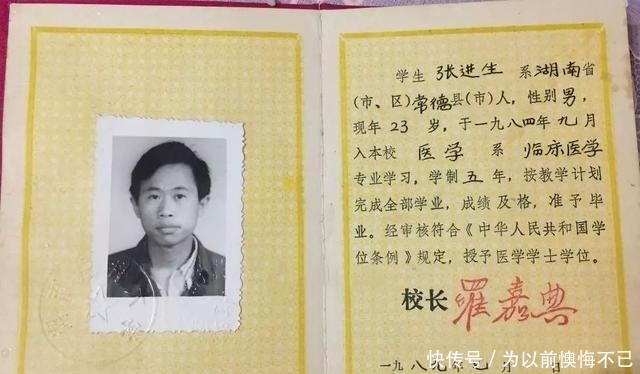 学生 张进生 系湖南省
(市、区)常德县(市)人，性别男，
现年 23 岁，于一九八四年九月
入本校 医学 系 临床医学
专业学习，学制五年，按教学计划
完成全部学业，成绩及格，准予毕
业。经审核符合《中华人民共和国学
位条例》规定，授予医学学士学位。
校长 罗嘉典
一九八九年
快传号／为以前懊悔不已